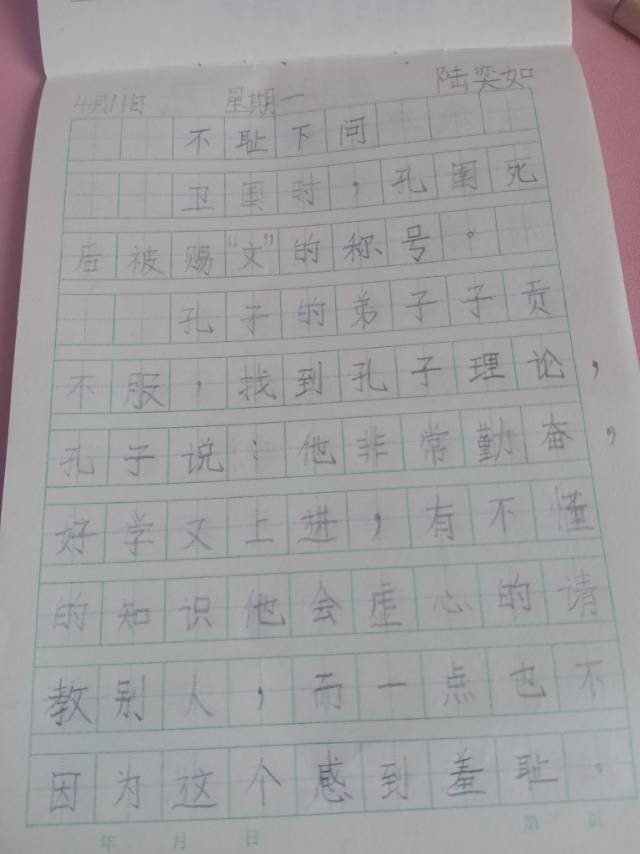 4月11日 星期一 陆奕如
不耻下问
卫国时，孔圉死
后被赐“文”的称号。
孔子的弟子子贡
不服，找到孔子理论，
孔子说：他非常勤奋，
好学又上进，有不懂
的知识他会虚心的请
教别人，而一点也不
因为这个感到羞耻。
年 月 日 第 页